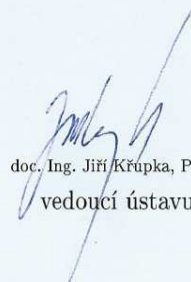 doc. Ing. Jiří Křupka, P
vedoucí ústavu